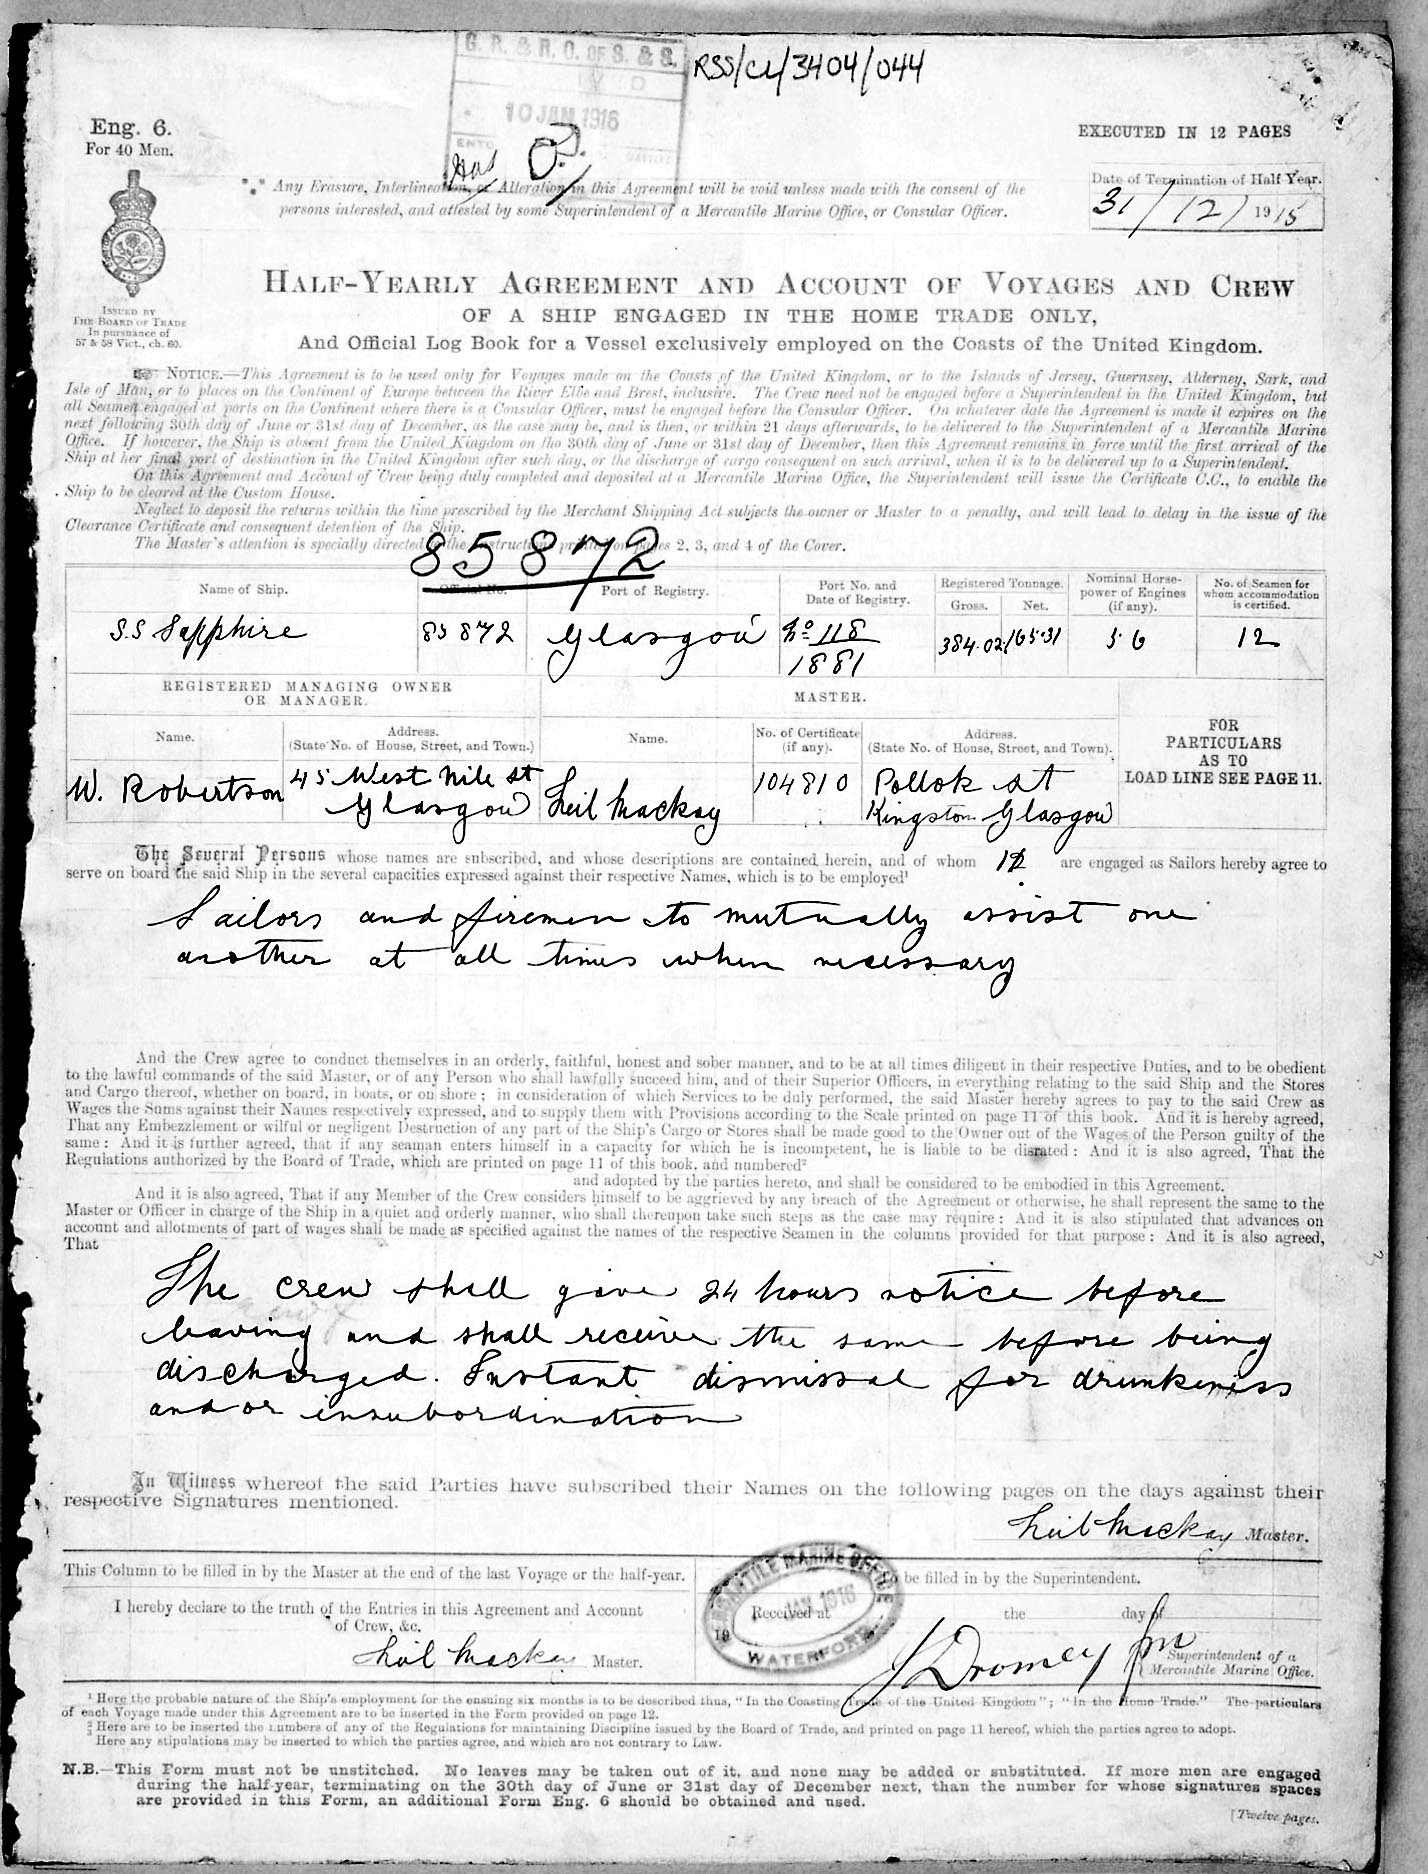 G. R. & R. O. OF S. & S.
RSS/CL/3404/044
10 JAN 1916
Eng. 6.
For 40 Men.
EXECUTED IN 12 PAGES
Date of Termination of Half Year.
31/12/1915
Any Erasure, Interlineation, or Alteration in this Agreement will be void unless made with the consent of the
persons interested, and attested by some Superintendent of a Mercantile Marine Office, or Consular Officer.
ISSUED BY
THE BOARD OF TRADE
In pursuance of
57 & 58 Vict., ch. 60.
HALF-YEARLY AGREEMENT AND ACCOUNT OF VOYAGES AND CREW
OF A SHIP ENGAGED IN THE HOME TRADE ONLY,
And Official Log Book for a Vessel exclusively employed on the Coasts of the United Kingdom.
NOTICE.—This Agreement is to be used only for Voyages made on the Coasts of the United Kingdom, or to the Islands of Jersey, Guernsey, Alderney, Sark, and
Isle of Man, or to places on the Continent of Europe between the River Elbe and Brest, inclusive. The Crew need not be engaged before a Superintendent in the United Kingdom, but
all Seamen engaged at ports on the Continent where there is a Consular Officer, must be engaged before the Consular Officer. On whatever date the Agreement is made it expires on the
next following 30th day of June or 31st day of December, as the case may be, and is then, or within 21 days afterwards, to be delivered to the Superintendent of a Mercantile Marine
Office. If however, the Ship is absent from the United Kingdom on the 30th day of June or 31st day of December, then this Agreement remains in force until the first arrival of the
Ship at her final port of destination in the United Kingdom after such day, or the discharge of cargo consequent on such arrival, when it is to be delivered up to a Superintendent.
On this Agreement and Account of Crew being duly completed and deposited at a Mercantile Marine Office, the Superintendent will issue the Certificate C.C., to enable the
Ship to be cleared at the Custom House.
Neglect to deposit the returns within the time prescribed by the Merchant Shipping Act subjects the owner or Master to a penalty, and will lead to delay in the issue of the
Clearance Certificate and consequent detention of the Ship.
The Master's attention is specially directed to the instructions printed on pages 2, 3, and 4 of the Cover.
85872
Name of Ship. Official No. Port of Registry. Port No. and Date of Registry. Registered Tonnage. Gross. Net. Nominal Horse-power of Engines (if any). No. of Seamen for whom accommodation is certified.
S.S Sapphire 85872 Glasgow No 118 1881 384.02 165.31 56 12
REGISTERED MANAGING OWNER OR MANAGER. MASTER.
FOR PARTICULARS AS TO LOAD LINE SEE PAGE 11.
Name. Address. (State No. of House, Street, and Town.) Name. No. of Certificate (if any). Address. (State No. of House, Street, and Town).
W. Robertson 45 West Nile St Glasgow Neil Mackay 104810 Pollok St Kingston Glasgow
The Several Persons whose names are subscribed, and whose descriptions are contained herein, and of whom 12 are engaged as Sailors hereby agree to
serve on board the said Ship in the several capacities expressed against their respective Names, which is to be employed¹
Sailors and firemen to mutually assist one
another at all times when necessary
And the Crew agree to conduct themselves in an orderly, faithful, honest and sober manner, and to be at all times diligent in their respective Duties, and to be obedient
to the lawful commands of the said Master, or of any Person who shall lawfully succeed him, and of their Superior Officers, in everything relating to the said Ship and the Stores
and Cargo thereof, whether on board, in boats, or on shore; in consideration of which Services to be duly performed, the said Master hereby agrees to pay to the said Crew as
Wages the Sums against their Names respectively expressed, and to supply them with Provisions according to the Scale printed on page 11 of this book. And it is hereby agreed,
That any Embezzlement or wilful or negligent Destruction of any part of the Ship's Cargo or Stores shall be made good to the Owner out of the Wages of the Person guilty of the
same: And it is further agreed, that if any seaman enters himself in a capacity for which he is incompetent, he is liable to be disrated: And it is also agreed, That the
Regulations authorized by the Board of Trade, which are printed on page 11 of this book, and numbered²
and adopted by the parties hereto, and shall be considered to be embodied in this Agreement.
And it is also agreed, That if any Member of the Crew considers himself to be aggrieved by any breach of the Agreement or otherwise, he shall represent the same to the
Master or Officer in charge of the Ship in a quiet and orderly manner, who shall thereupon take such steps as the case may require: And it is also stipulated that advances on
account and allotments of part of wages shall be made as specified against the names of the respective Seamen in the columns provided for that purpose: And it is also agreed,
That
The crew shall give 24 hours notice before
leaving and shall receive the same before being
discharged. Instant dismissal for drunkeness
and or insubordination
In Witness whereof the said Parties have subscribed their Names on the following pages on the days against their
respective Signatures mentioned.
Neil Mackay Master.
This Column to be filled in by the Master at the end of the last Voyage or the half-year.
to be filled in by the Superintendent.
I hereby declare to the truth of the Entries in this Agreement and Account
of Crew, &c.
Neil Mackay Master.
MERCANTILE MARINE OFFICE
JAN 1916
WATERFORD
Received at the day of
19
J Dromey
Superintendent of a
Mercantile Marine Office.
¹ Here the probable nature of the Ship's employment for the ensuing six months is to be described thus, "In the Coasting Trade of the United Kingdom"; "In the Home Trade." The particulars
of each Voyage made under this Agreement are to be inserted in the Form provided on page 12.
² Here are to be inserted the numbers of any of the Regulations for maintaining Discipline issued by the Board of Trade, and printed on page 11 hereof, which the parties agree to adopt.
Here any stipulations may be inserted to which the parties agree, and which are not contrary to Law.
N.B.—This Form must not be unstitched. No leaves may be taken out of it, and none may be added or substituted. If more men are engaged
during the half-year, terminating on the 30th day of June or 31st day of December next, than the number for whose signatures spaces
are provided in this Form, an additional Form Eng. 6 should be obtained and used.
[Twelve pages.